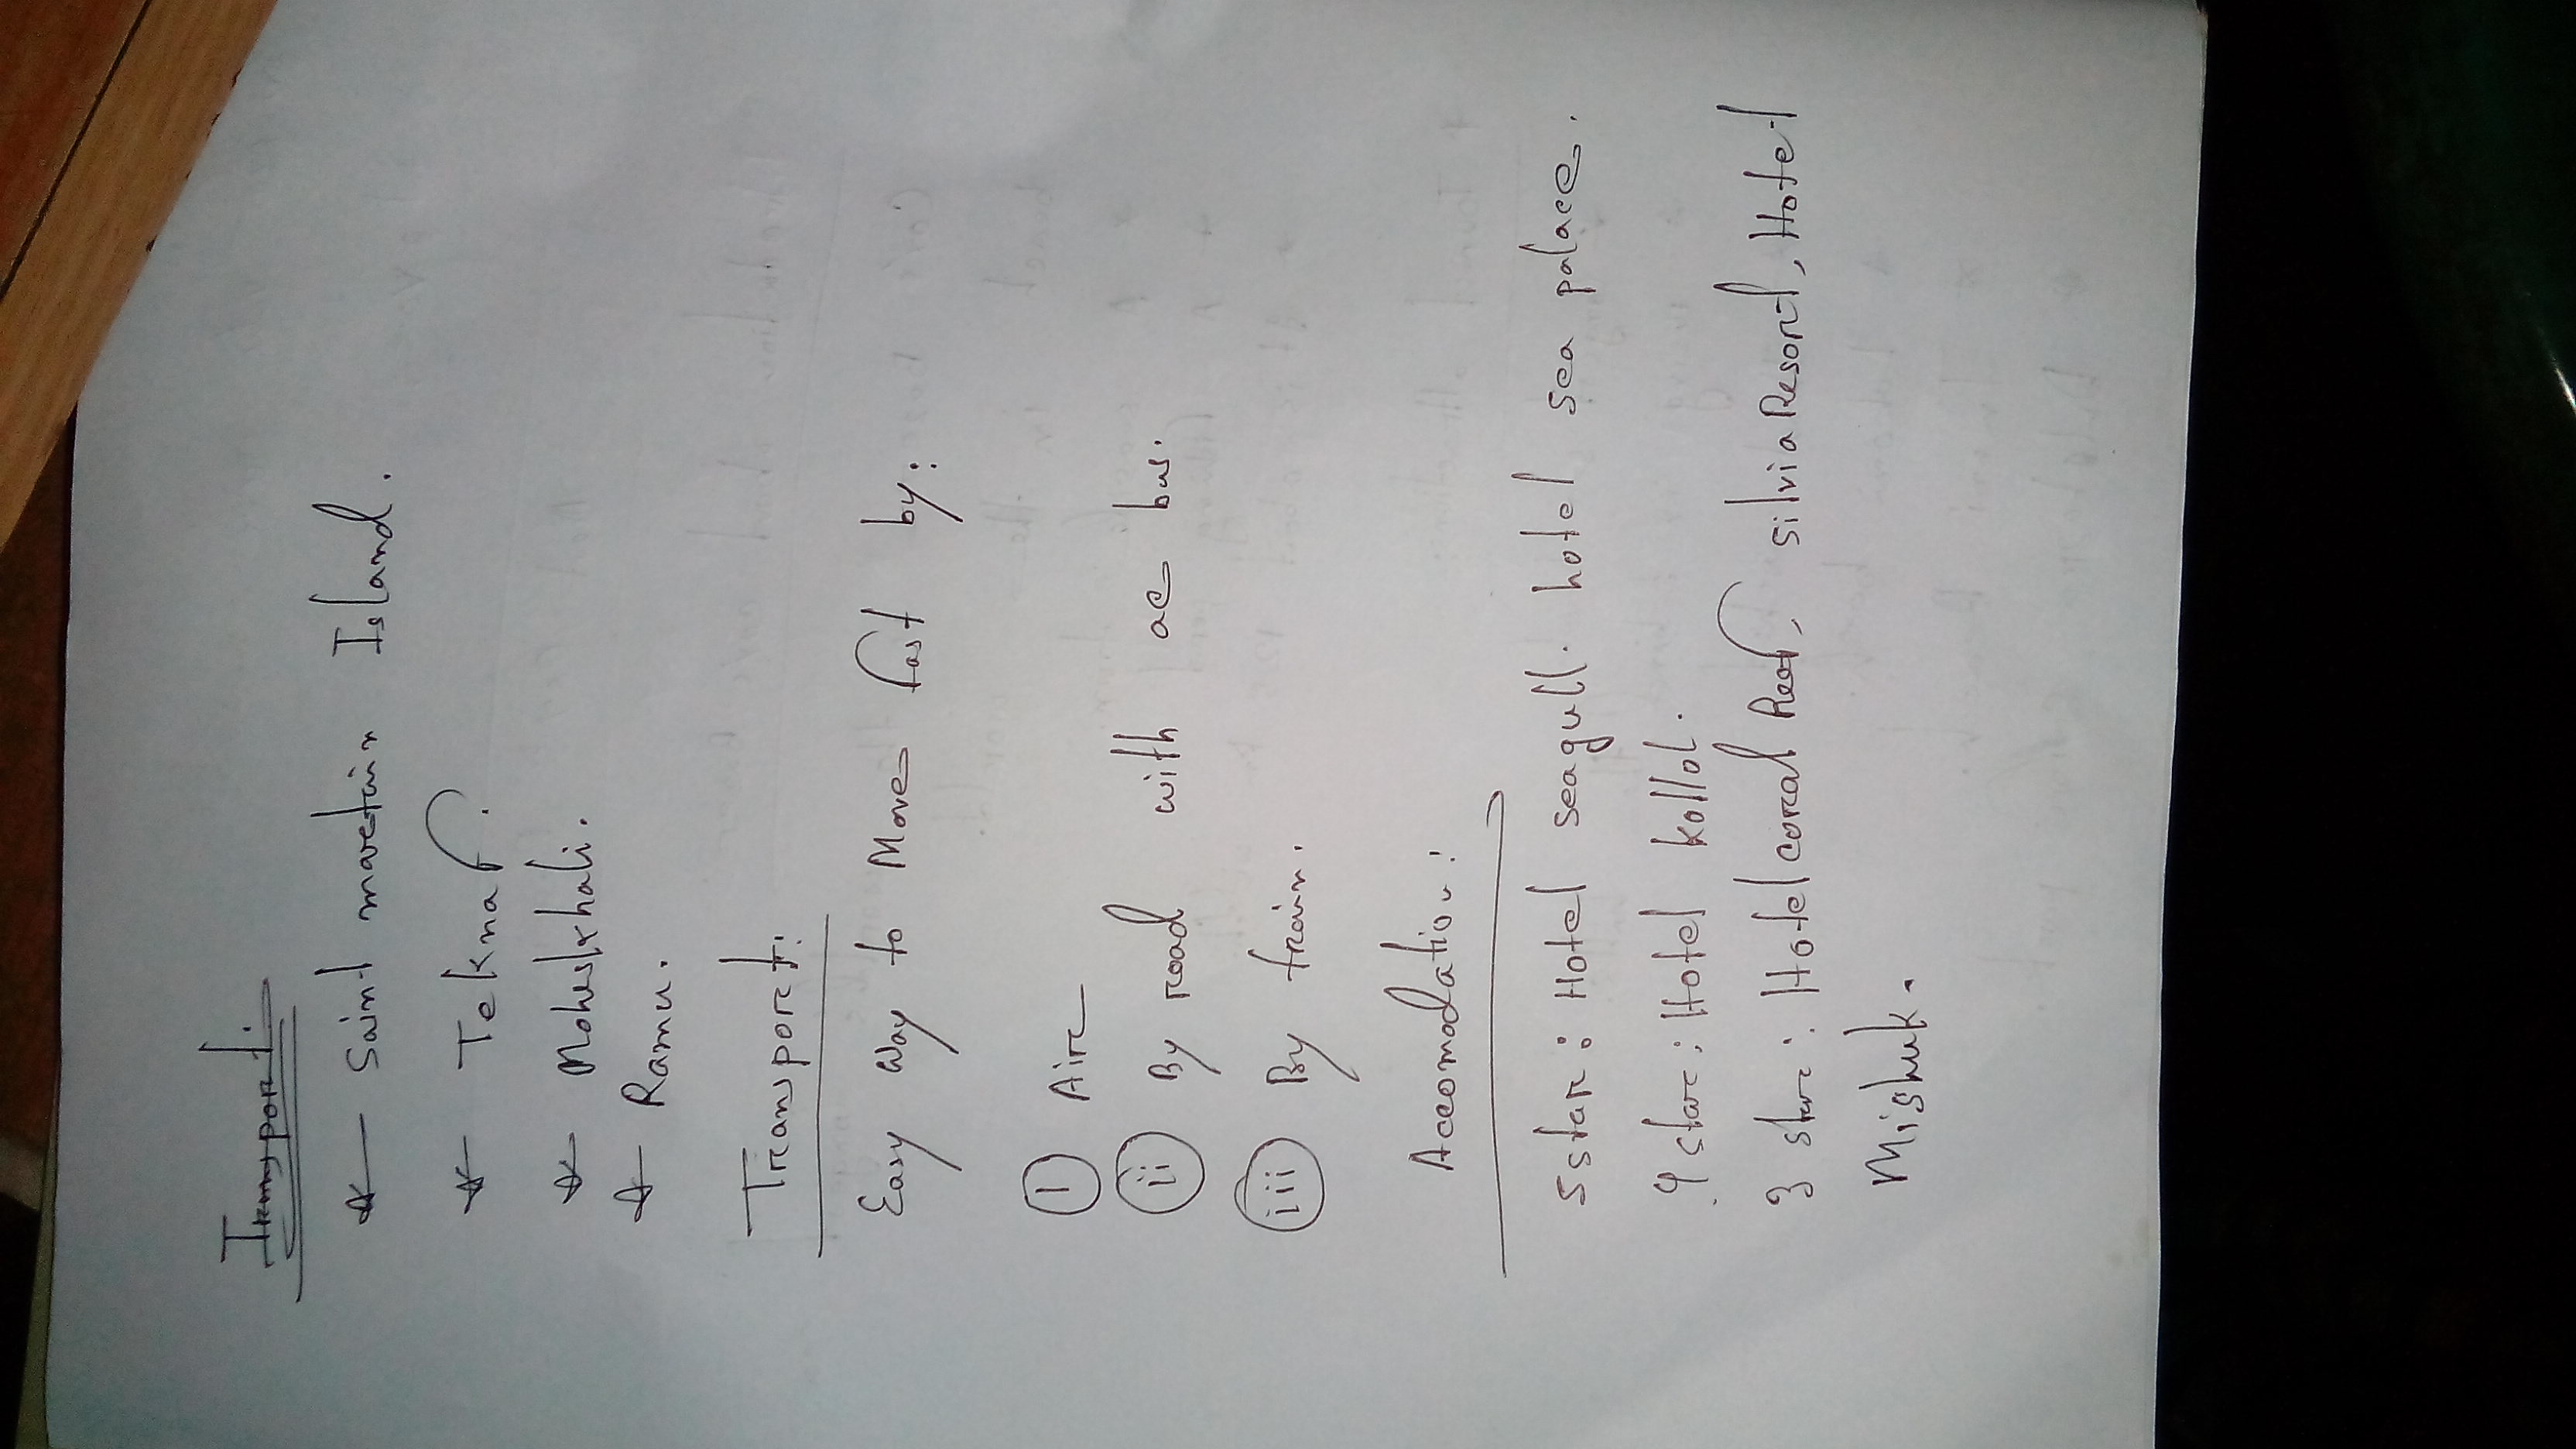 Transport:
* Saint martain Island.
* Teknaf.
* Moheskhali.
* Ramu.
Transport:
Easy way to Move fast by:
i Air
ii By road with ac bus.
iii By train.
Accomodation:
5 star: Hotel seagull. hotel sea palace.
4 star: Hotel kollol.
3 star: Hotel coral Reef, silvia Resort, Hotel
Mishuk.